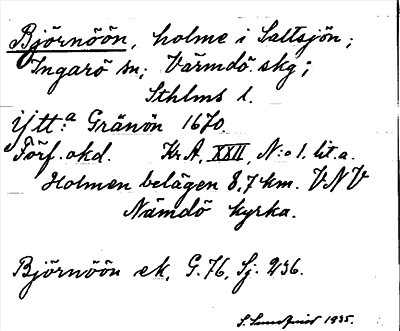 Björnöön, holme i Saltsjön;
Ingarö sn; Värmdö skg;
Sthlms l.
Ytt:a Gränön 1670.
Förf. okd. Kr. A, XXII, N:o 1. lit. a.
Holmen belägen 8,7 km. VNV
Nämdö kyrka.
Björnöön ek, G. 76, Sj. 236.
S. 1935.